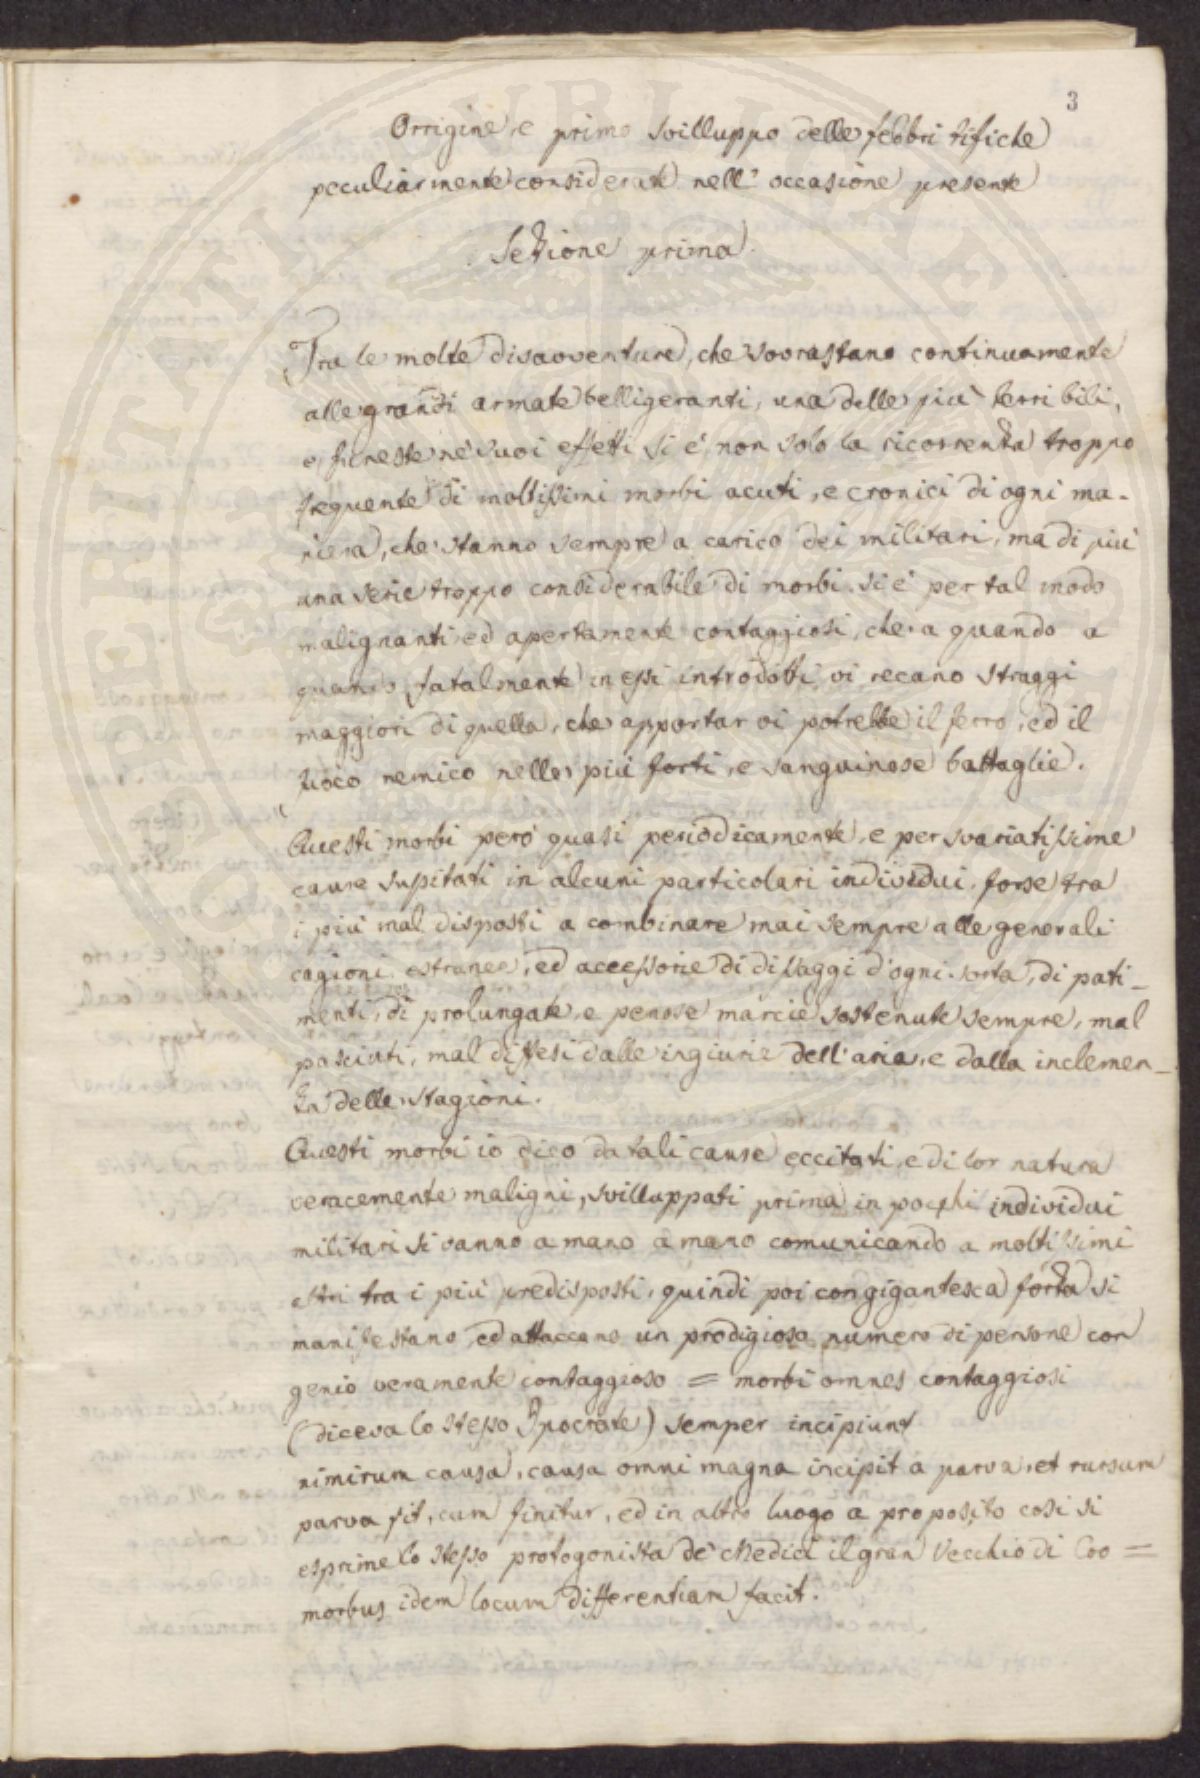 3
Orrigine, e primo svilluppo delle febbri tifiche
peculiarmente considerate nell' occasione presente
Sezione prima.
Tra le molte disavventure, che sovrastano continuamente
alle grandi armate belligeranti, una delle più terribili,
e funeste ne' suoi effetti si è, non solo la ricorrenza troppo
frequente di moltissimi morbi acuti, e cronici di ogni ma-
niera, che stanno sempre a carico dei militari, ma di più
una serie troppo considerabile di morbi si è per tal modo
malignanti, ed apertamente contaggiosi, che a quando a
quando fatalmente in essi introdotti vi recano straggi
maggiori di quella, che apportar vi potrebbe il ferro, ed il
fuoco nemico nelle più forti, e sanguinose battaglie.
Questi morbi però quasi periodicamente, e per svariatissime
cause suscitati in alcuni particolari individui, forse tra
i più mal disposti a combinare mai sempre alle generali
cagioni estranee, ed accessorie di dissaggi d'ogni sorta, di pati-
menti, di prolungate, e penose marcie sostenute sempre, mal
pasciuti, mal diffesi dalle ingiurie dell'aria, e dalla inclemen-
za delle stagioni.
Questi morbi io dico da tali cause eccitati, e di lor natura
veracemente maligni, svilluppati prima in pochi individui
militari si vanno a mano a mano comunicando a moltissimi
altri tra i più predisposti, quindi poi con gigantesca forza si
manifestano, ed attaccano un prodigioso numero di persone con
genio veramente contaggioso = morbi omnes contaggiosi
(diceva lo stesso Ipocrate) semper incipiunt
nimirum causa, causa omni magna incipit a parva, et rursum
parva fit, cum finitur, ed in altro luogo a proposito così si
esprime lo stesso protogonista de' Medici il gran Vecchio di Coo =
morbus idem locum differentiam facit.